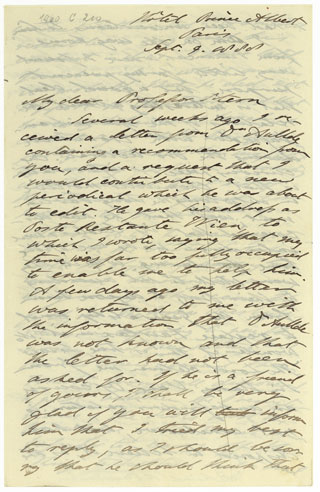 Hotel Prince Albert
Paris
Sept. 9. 1888
My dear Professor Stern
Several weeks ago I re-
ceived a letter from Dr
containing a recommendation from
you, and a request that I
would contribute to a new
periodical which he was about
to edit. He gave his address as
Poste Restante Wien, to
which I wrote, saying that my
time was far too fully occupied
to enable me to help him.
A few days ago my letter
was returned to me with
the information that Dr
was not known and that
the letter had not been
asked for. If he is a friend
of yours, I shall be very
glad if you will inform
him that I tried my best
to reply, as I should be sor-
ry that he should think that